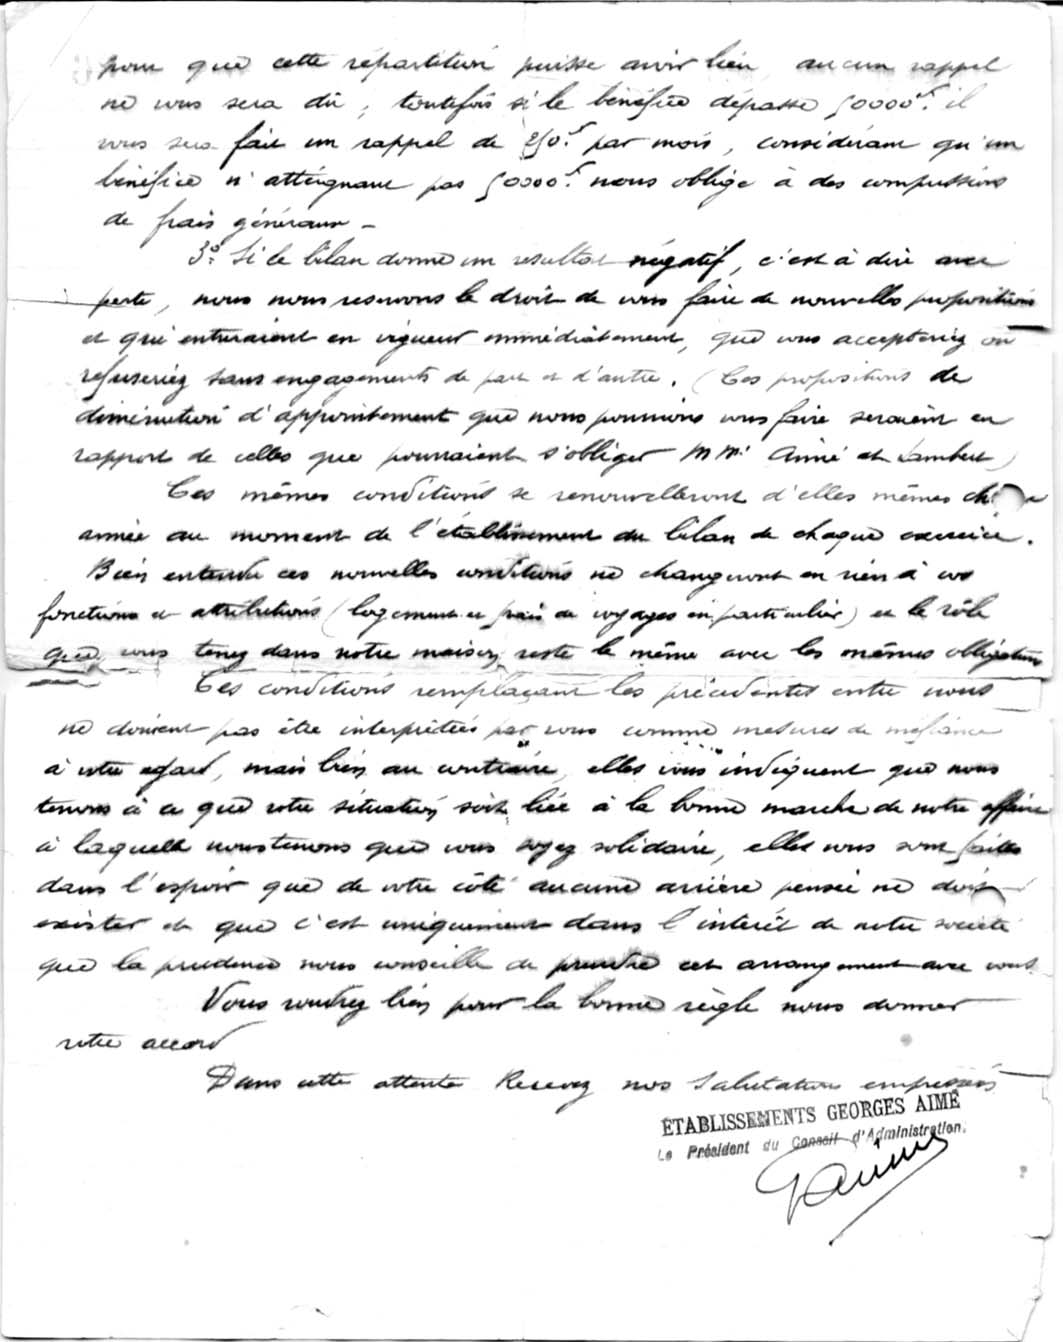 pour que cette répartition puisse avoir lieu, aucun rappel
ne vous sera dû ; toutefois si le bénéfice dépasse 50000 f. il
vous sera fait un rappel de 250 f. par mois, considérant qu'un
bénéfice n'atteignant pas 50000 f. nous oblige à des compressions
de frais généraux -
3° Si le bilan donne un résultat négatif, c'est à dire avec
perte, nous nous réservons le droit de vous faire de nouvelles propositions
et qui entreraient en vigueur immédiatement, que vous accepteriez ou
refuseriez sans engagements de part et d'autre. (Ces propositions de
diminution d'appointement que nous pourrions vous faire seraient en
rapport de celles que pourraient s'obliger MM. Aimé et Lambert)
Ces mêmes conditions se renouvelleront d'elles mêmes
année au moment de l'établissement du bilan de chaque exercice.
Bien entendu ces nouvelles conditions ne changeront en rien à vos
fonctions et attributions (logement et frais de voyages en particulier) et le rôle
que vous tenez dans notre maison reste le même avec les mêmes obligations
Ces conditions remplaçant les précédentes entre nous
ne doivent pas être interprétées par vous comme mesures de méfiance
à votre égard, mais bien au contraire, elles vous indiquent que nous
tenons à ce que votre situation soit liée à la bonne marche de notre affaire
à laquelle nous tenons que vous soyez solidaire, elles vous sont faites
dans l'espoir que de votre côté aucune arrière pensée ne doit
exister et que c'est uniquement dans l'intérêt de notre société
que la prudence nous conseille de prendre cet arrangement avec vous.
Vous voudrez bien pour la bonne règle nous donner
votre accord
Dans cette attente Recevez nos Salutations empressées
ETABLISSEMENTS GEORGES AIMÉ
Le Président du Conseil d'Administration.